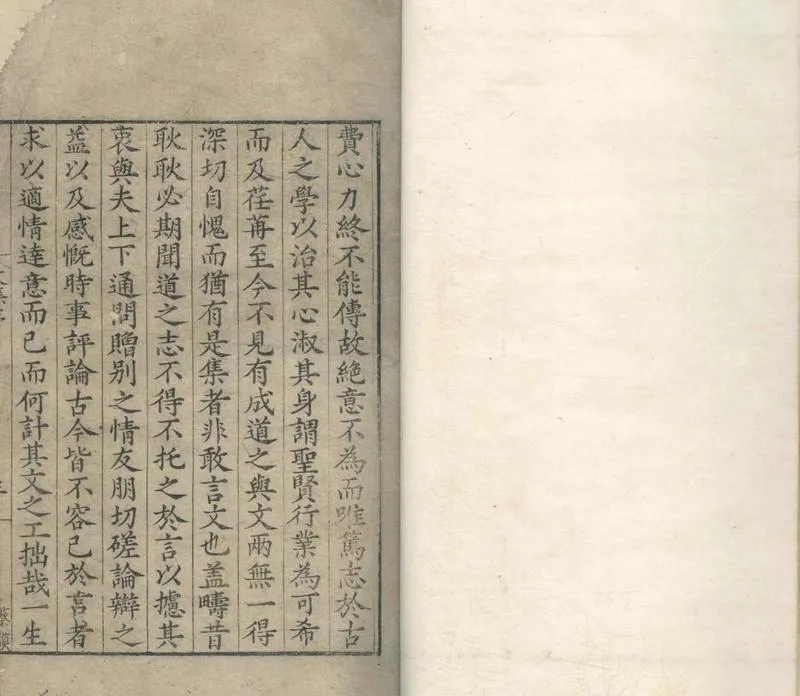 費心力終不能傳故絕意不為而唯篤志於古
人之學以治其心淑其身謂聖賢行業為可希
而及荏苒至今不見有成道之與文兩無一得
深切自愧而猶有是集者非敢言文也盖疇昔
耿耿必期聞道之志不得不托之於言以攄其
衷與夫上下通問贈别之情友朋切磋論辯之
益以及感慨時事評論古今皆不容已於言者
求以適情達意而已而何計其文之工拙哉一生